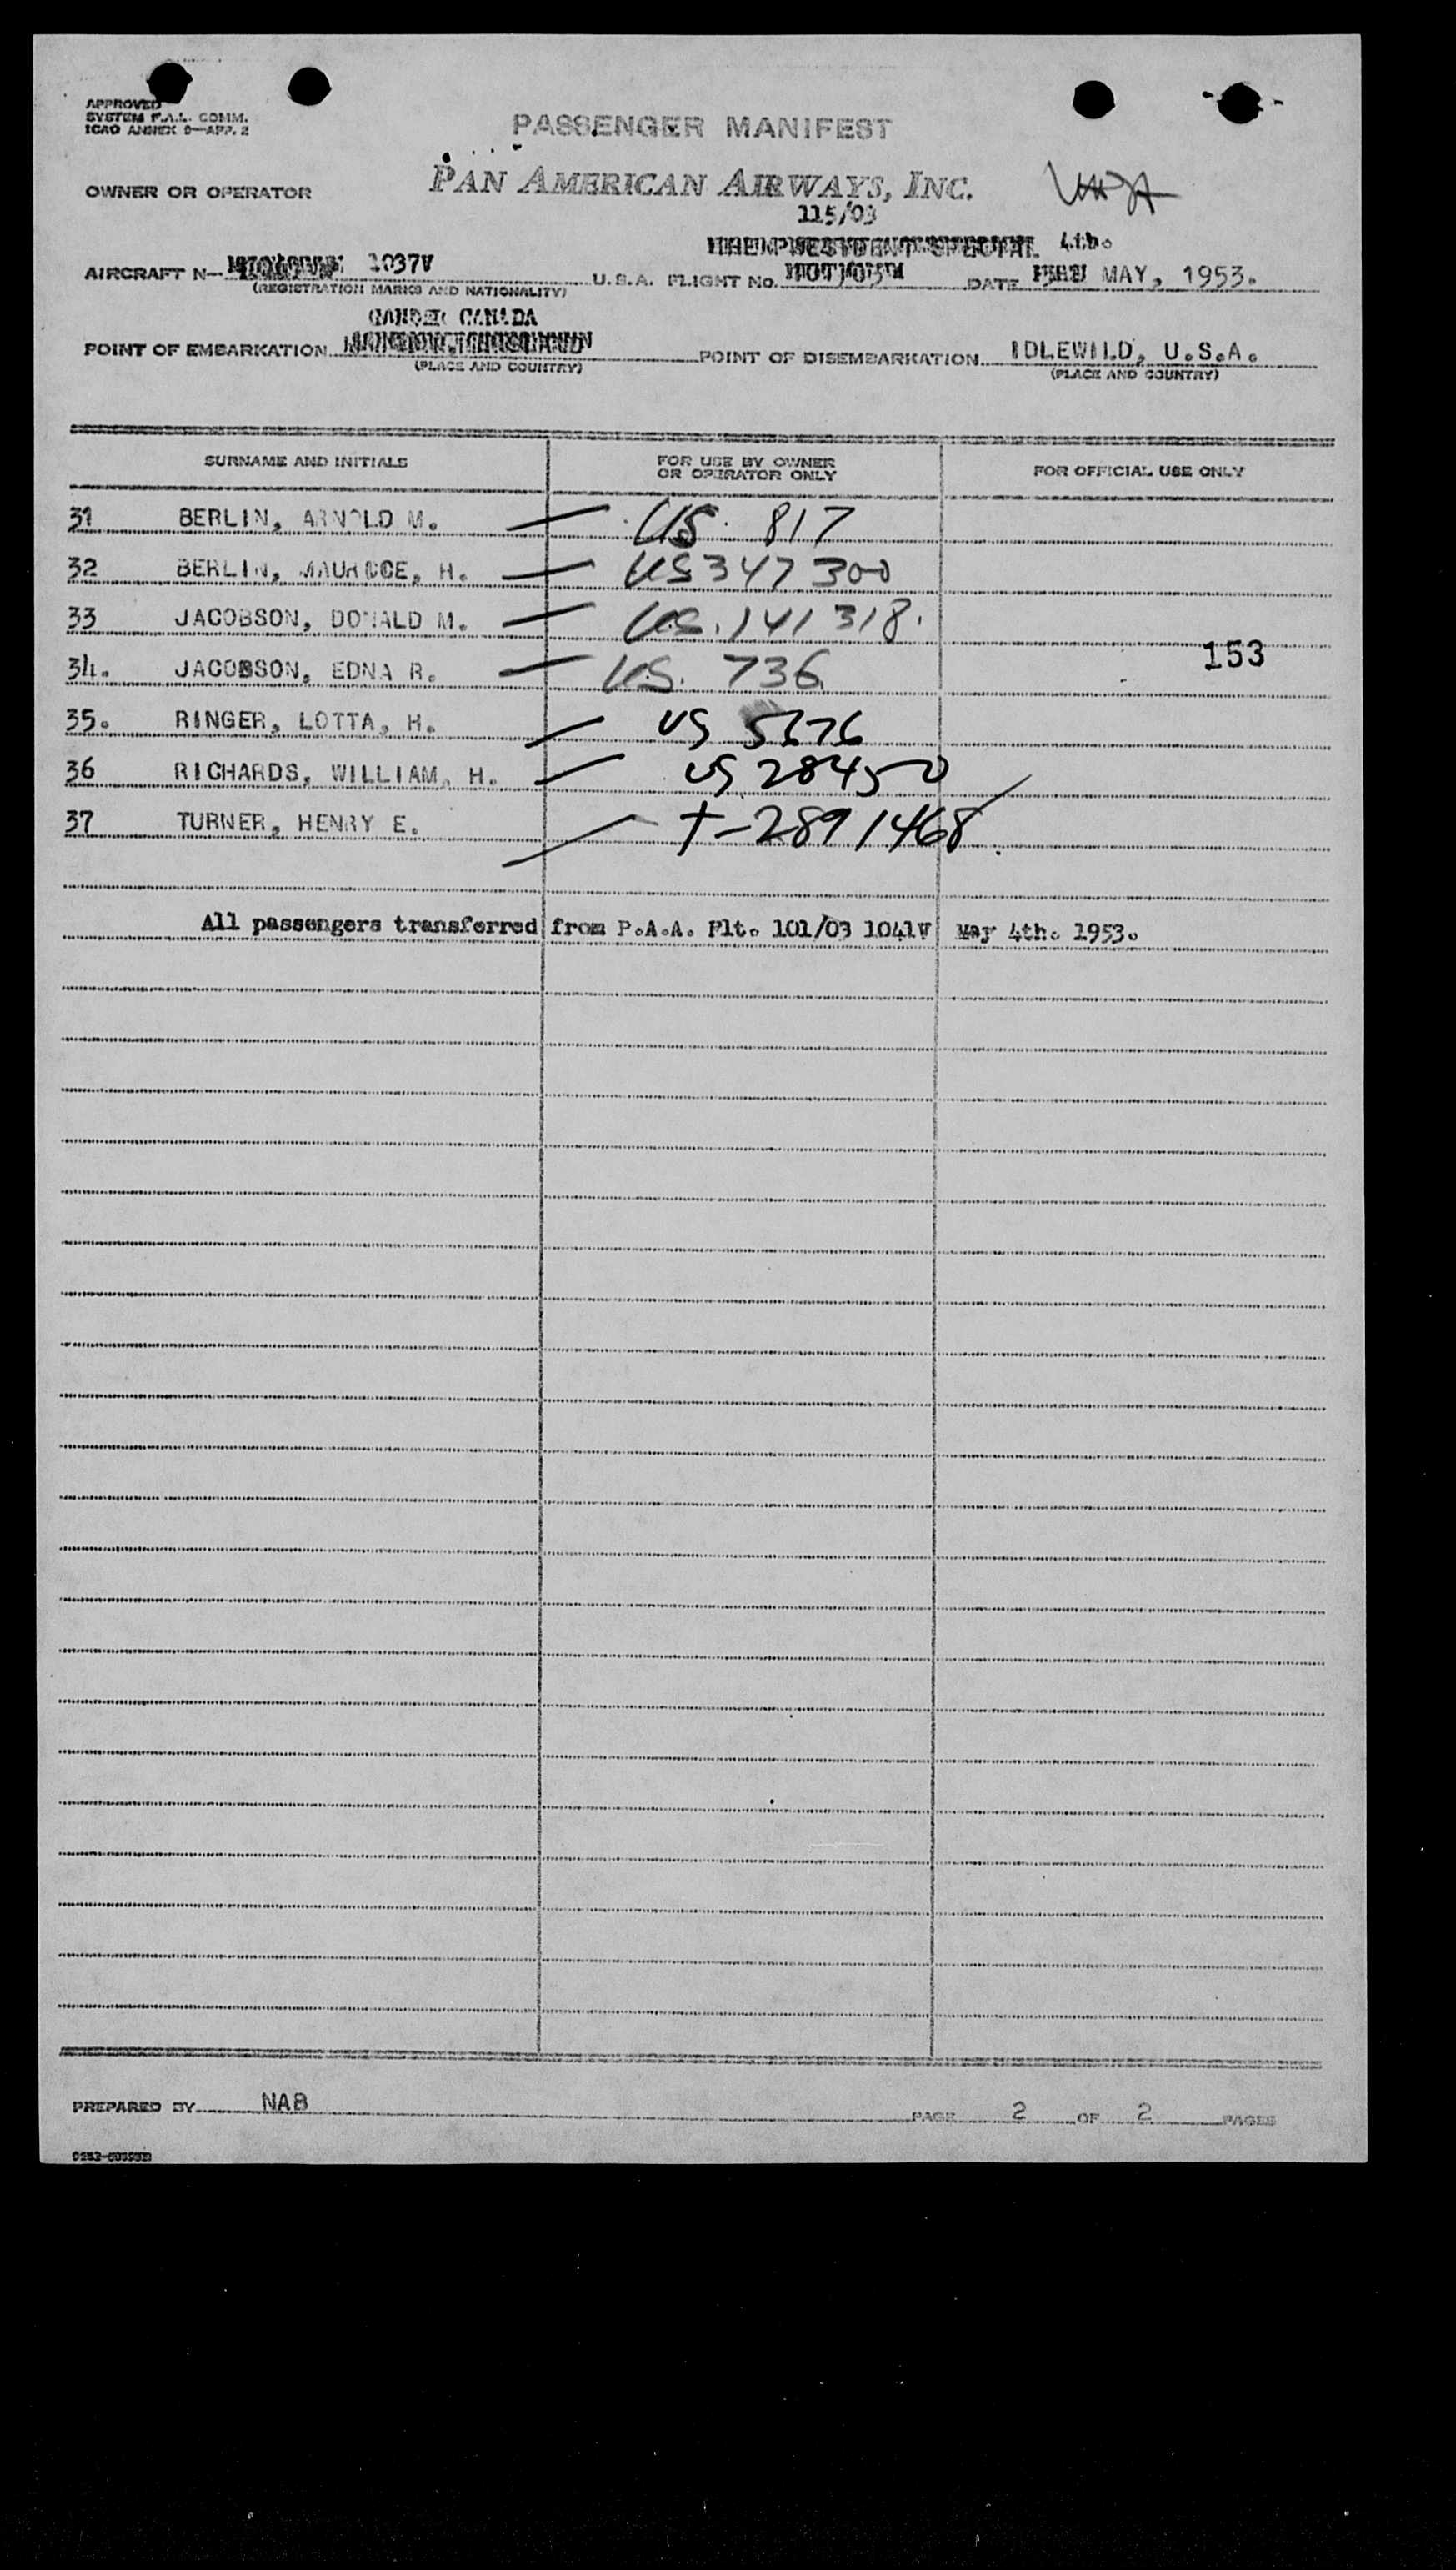 APPROVED
SYSTEM F.A.L. COMM.
ICAO ANNEX 9—APP. 2
PASSENGER MANIFEST
OWNER OR OPERATOR PAN AMERICAN AIRWAYS, INC.
115/03
4th.
AIRCRAFT N— 1037V U.S.A. FLIGHT NO. DATE MAY, 1953.
(REGISTRATION MARKS AND NATIONALITY)
GANDER CANADA
POINT OF EMBARKATION POINT OF DISEMBARKATION IDLEWILD, U.S.A.
(PLACE AND COUNTRY) (PLACE AND COUNTRY)
SURNAME AND INITIALS FOR USE BY OWNER OR OPERATOR ONLY FOR OFFICIAL USE ONLY
31 BERLIN, ARNOLD M. US. 817
32 BERLIN, MAURICE, H. US 347 300
33 JACOBSON, DONALD M. US. 141 318.
153
34. JACOBSON, EDNA R. US. 736
35. RINGER, LOTTA, H. US 5676
36 RICHARDS, WILLIAM, H. US 28450
37 TURNER, HENRY E. T-2891468
All passengers transferred from P.A.A. Flt. 101/03 1041V May 4th. 1953.
PREPARED BY NAB PAGE 2 OF 2 PAGES